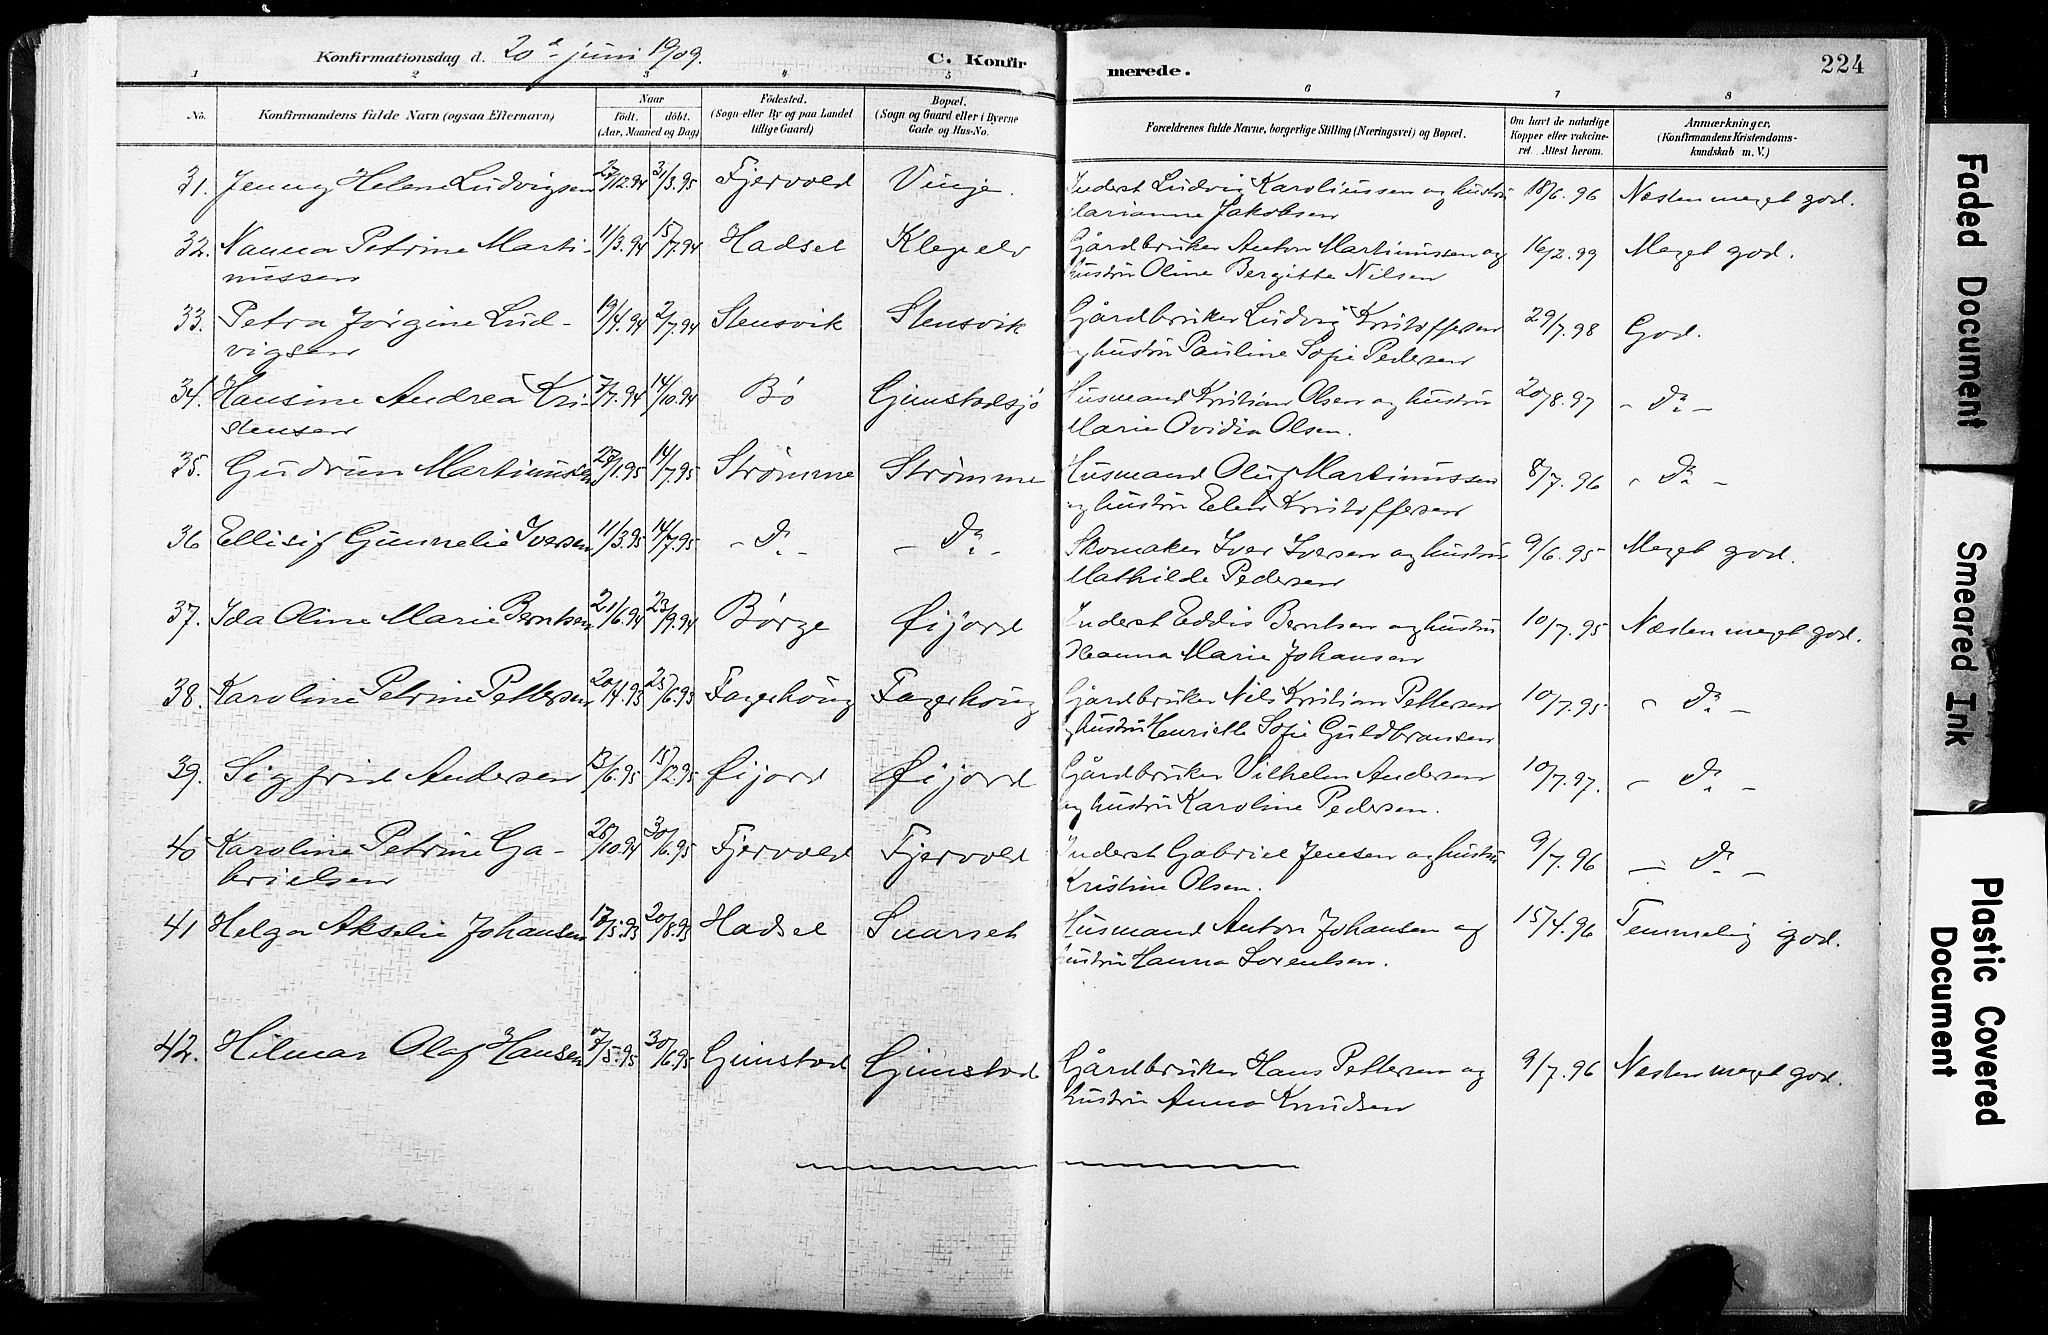 Konfirmationsdag d. 20de juni 1909.
C. Konfirmerede.
224
1 2 3 4 5 6 7 8
No.
Konfirmandens fulde Navn (ogsaa Efternavn)
Naar
født. døbt.
(Aar, Maaned og Dag)
Fødested.
(Sogn eller By og paa Landet
tillige Gaard)
Bopæl.
(Sogn og Gaard eller i Byerne
Gade og Hus-No.
Forældrenes fulde Navne, borgerlige Stilling (Næringsvei) og Bopæl.
Om havt de naturlige
Kopper eller vakcine-
ret. Attest herom.
Anmærkninger,
(Konfirmandens Kristendoms-
kundskab m. V.)
31. Jenny Helene Ludvigsen 27/12.94 31/3.95 Fjervold Vinje. Inderst Ludvig Karoliussen og hustru 18/6.96 Næsten meget god.
Marianne Jakobsen
32. Nanna Petrine Marti- 11/3.94 15/7.94 Hadsel Klegelv Gårdbruker Anton Martinussen og 16/2.99 Meget god.
nussen hustru Oline Bergitte Nilsen
33. Petra Jørgine Lud- 19/4.94 2/7.94 Stensvik Stensvik Gårdbruker Ludvig Kristoffersen 29/7.98 God.
vigsen og hustru Pauline Sofie Pedersen
34. Hansine Andrea Kri- 7/7.94 14/10.94 Bö Gimstadsjö Husmand Kristian Olsen og hustru 20/8.97 - Do. -
stensen Marie Ovidia Olsen.
35. Gudrun Martinussen 27/1.95 14/7.95 Strømme Strømme Husmand Oluf Martinussen 8/7.96 - Do. -
og hustru Elen Kristoffersen
36 Ellisif Gunnelie Iversen 11/3.95 14/7.95 - Do. - - Do. - Skomaker Iver Iversen og hustru 9/6.95 Meget god.
Mathilde Pedersen
37. Ida Oline Marie Berntsen 21/6.94 23/9.94 Børge Øijord Inderst Eddis Berntsen og hustru 10/7.95 Næsten meget god.
Hanna Marie Johansen
38. Karoline Petrine Pettersen 20/4.95 25/6.95 Fagerhöug Fagerhöug Gårdbruker Nils Kristian Pettersen 10/7.95 - Do. -
og hustru Henriette Sofie Guldbransen
39. Sigfrid Andersen 13/6.95 15/12.95 Øijord Øijord Gårdbruker Vilhelm Andersen 10/7.97. - Do. -
og hustru Karoline Pedersen.
40 Karoline Petrine Ga- 25/10.94 30/6.95 Fjervold Fjervold Inderst Gabriel Jensen og hustru 9/7.96 - Do. -
brielsen Kristine Olsen.
41 Helga Akselie Johansen 17/5.93 20/8.93 Hadsel Snarset Husmand Anton Johansen og 15/4.96 Temmelig god.
hustru Hanna Lorentsen.
42. Hilmar Olaf Hansen 7/5.95 30/6.95 Gimstad Gimstad Gårdbruker Hans Pettersen og 9/7.96 Næsten meget god.
hustru Anna Knudsen
Faded Document
Smeared Ink
Plastic Covered
Document